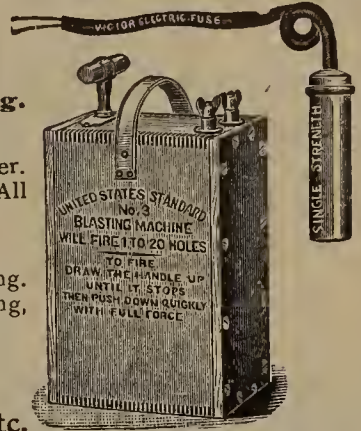 VICTOR ELECTRIC FUSE
SINGLE STRENGTH
g.
er.
All
UNITED STATES STANDARD
No. 3
BLASTING MACHINE
WILL FIRE 1 TO 20 HOLES
TO FIRE
DRAW THE HANDLE UP
UNTIL IT STOPS
THEN PUSH DOWN QUICKLY
WITH FULL FORCE
ng.
ng,
tc.